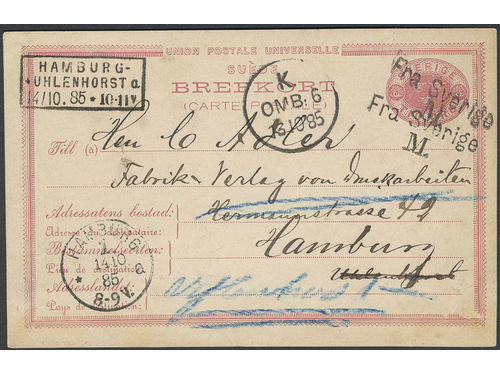 HAMBURG-
*UHLENHORST a
14/10.85*10-11V.
UNION POSTALE UNIVERSELLE
SUÈDE
BREFKORT
(CARTE POSTALE)
K
OMB. 6
13 10 85
SVERIGE
Fra Sverige
M.
Fra Sverige
M.
Till (à)
Herr C Adler
Fabrik Verlag von Druckarbeiten
Adressatens bostad:
Adresse du destinataire
Hermannstrasse 42
Bestämmelseorten:
Lieu de destination
Hamburg
Adresslandet
Pays de destination:
Uhlenhorst
HAMBURG
14 10
85
8-9 V.
Uhlenhorst